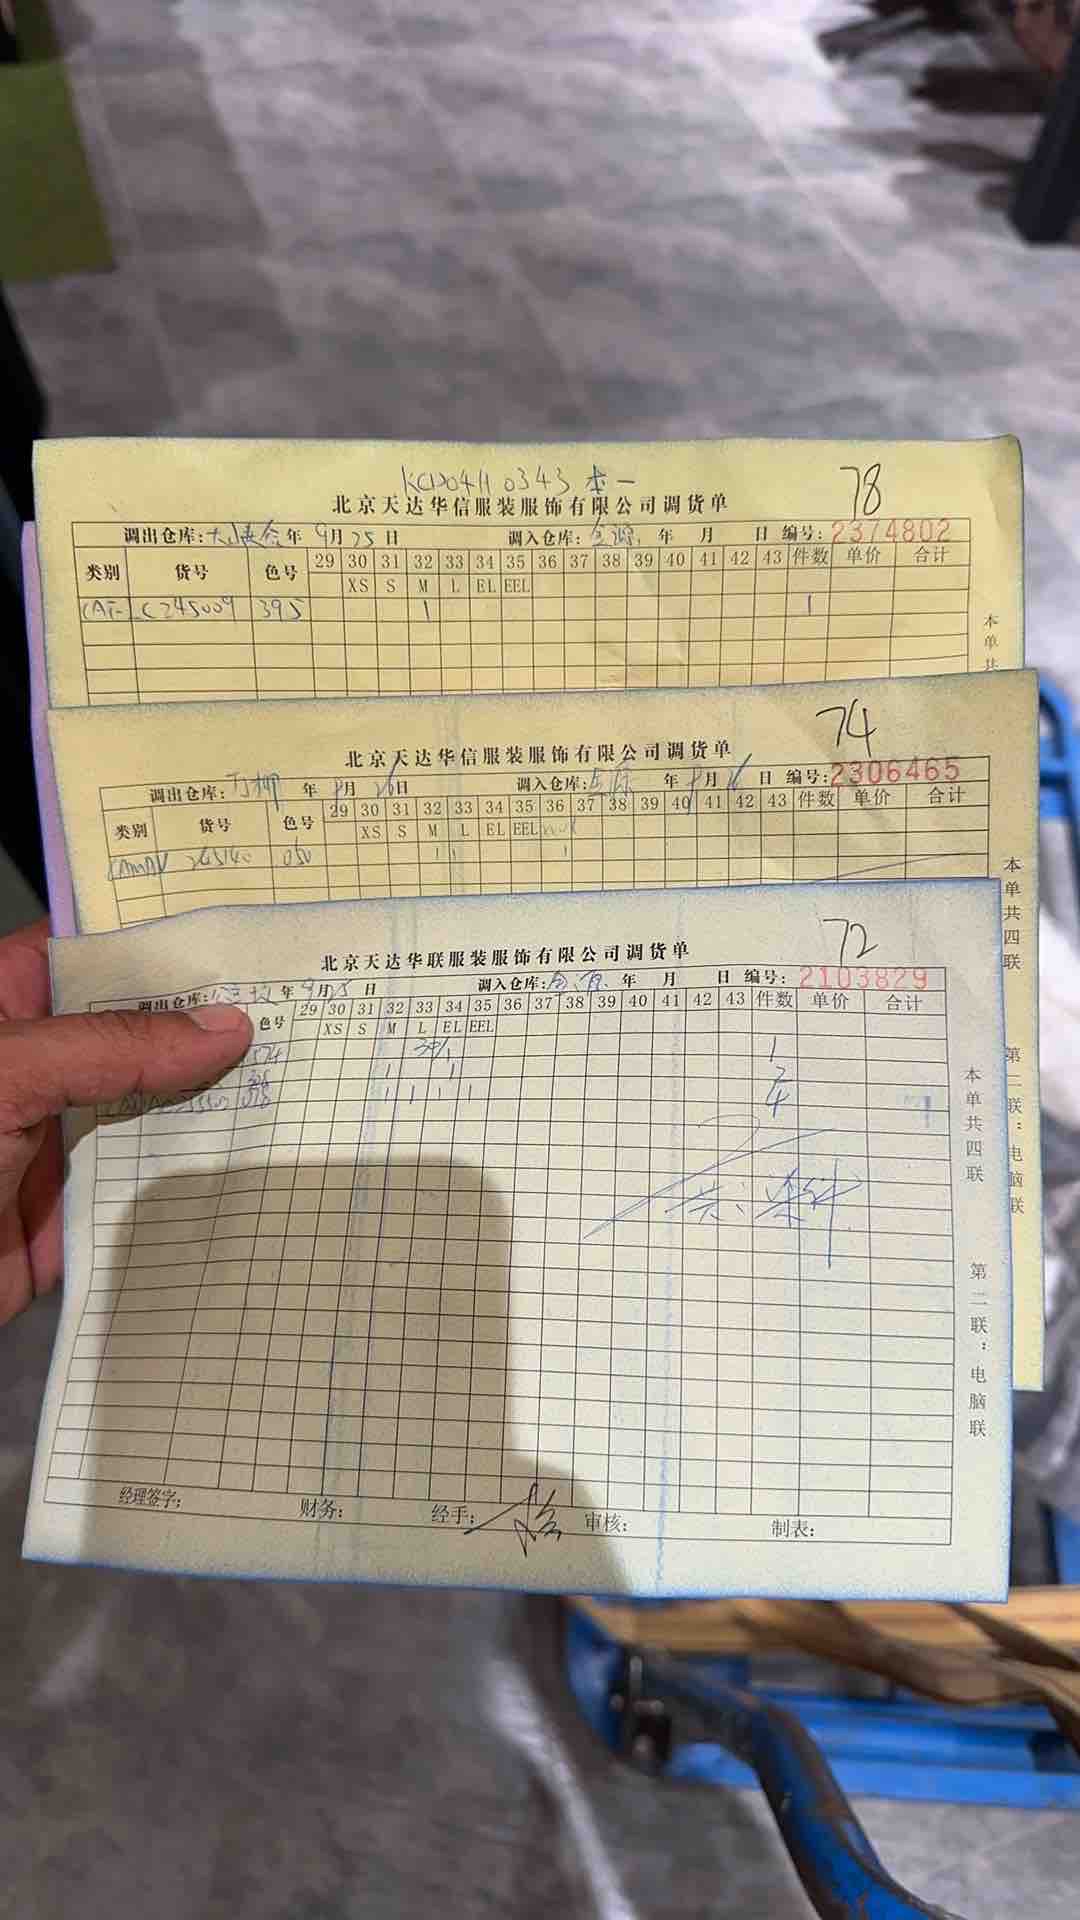 KCD0411 0343 本一
78
北京天达华信服装服饰有限公司调货单
调出仓库: 年 9月25日 调入仓库: 金源 年 月 日 编号:2374802
类别 货号 色号 29 30 31 32 33 34 35 36 37 38 39 40 41 42 43 件数 单价 合计
XS S M L EL EEL
C245009 395 1 1
本单共
74
北京天达华信服装服饰有限公司调货单
调出仓库: 年 月26日 调入仓库: 年 月 日 编号:2306465
类别 货号 色号 29 30 31 32 33 34 35 36 37 38 39 40 41 42 43 件数 单价 合计
XS S M L EL EEL
245140 050 1 1 1
本单共四联
第二联:电脑联
72
北京天达华联服装服饰有限公司调货单
调出仓库: 年 9月25日 调入仓库: 年 月 日 编号:2103829
色号 29 30 31 32 33 34 35 36 37 38 39 40 41 42 43 件数 单价 合计
XS S M L EL EEL
574 1 1
1 1 2
1 1 1 1 4
共:柒件
本单共四联
第二联:电脑联
经理签字: 财务: 经手: 审核: 制表: